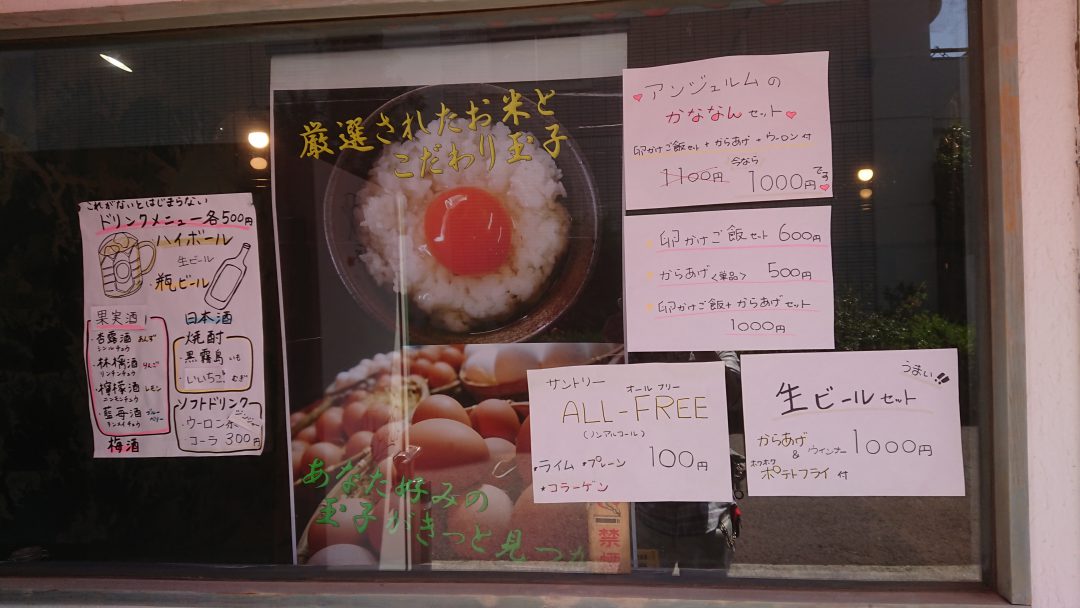 これがないとはじまらない
ドリンクメニュー各500円
ハイボール
生ビール
・瓶ビール
果実酒
・杏露酒 あんず
シンルチュウ
・林檎酒 りんご
リンチンチュウ
・檸檬酒 レモン
ニンモンチュウ
・藍苺酒 ブルーベリー
ランメイチュウ
梅酒
日本酒
焼酎
・黒霧島 いも
・いいちこ むぎ
ソフトドリンク
・ウーロン茶
ジンジャー
・コーラ 300円
厳選されたお米と
こだわり玉子
あなた好みの
玉子がきっと見つか
禁煙
アンジュルムの
かななんセット
卵かけご飯セット+からあげ+ウーロン付
今なら
1100円 1000円です
卵かけご飯セット 600円
からあげ<単品> 500円
卵かけご飯+からあげセット
1000円
サントリー オールフリー
ALL-FREE
(ノンアルコール)
★ライム ★プレーン 100円
★コラーゲン
うまい!!
生ビールセット
からあげ & ウインナー 1000円
ホクホク
ポテトフライ 付